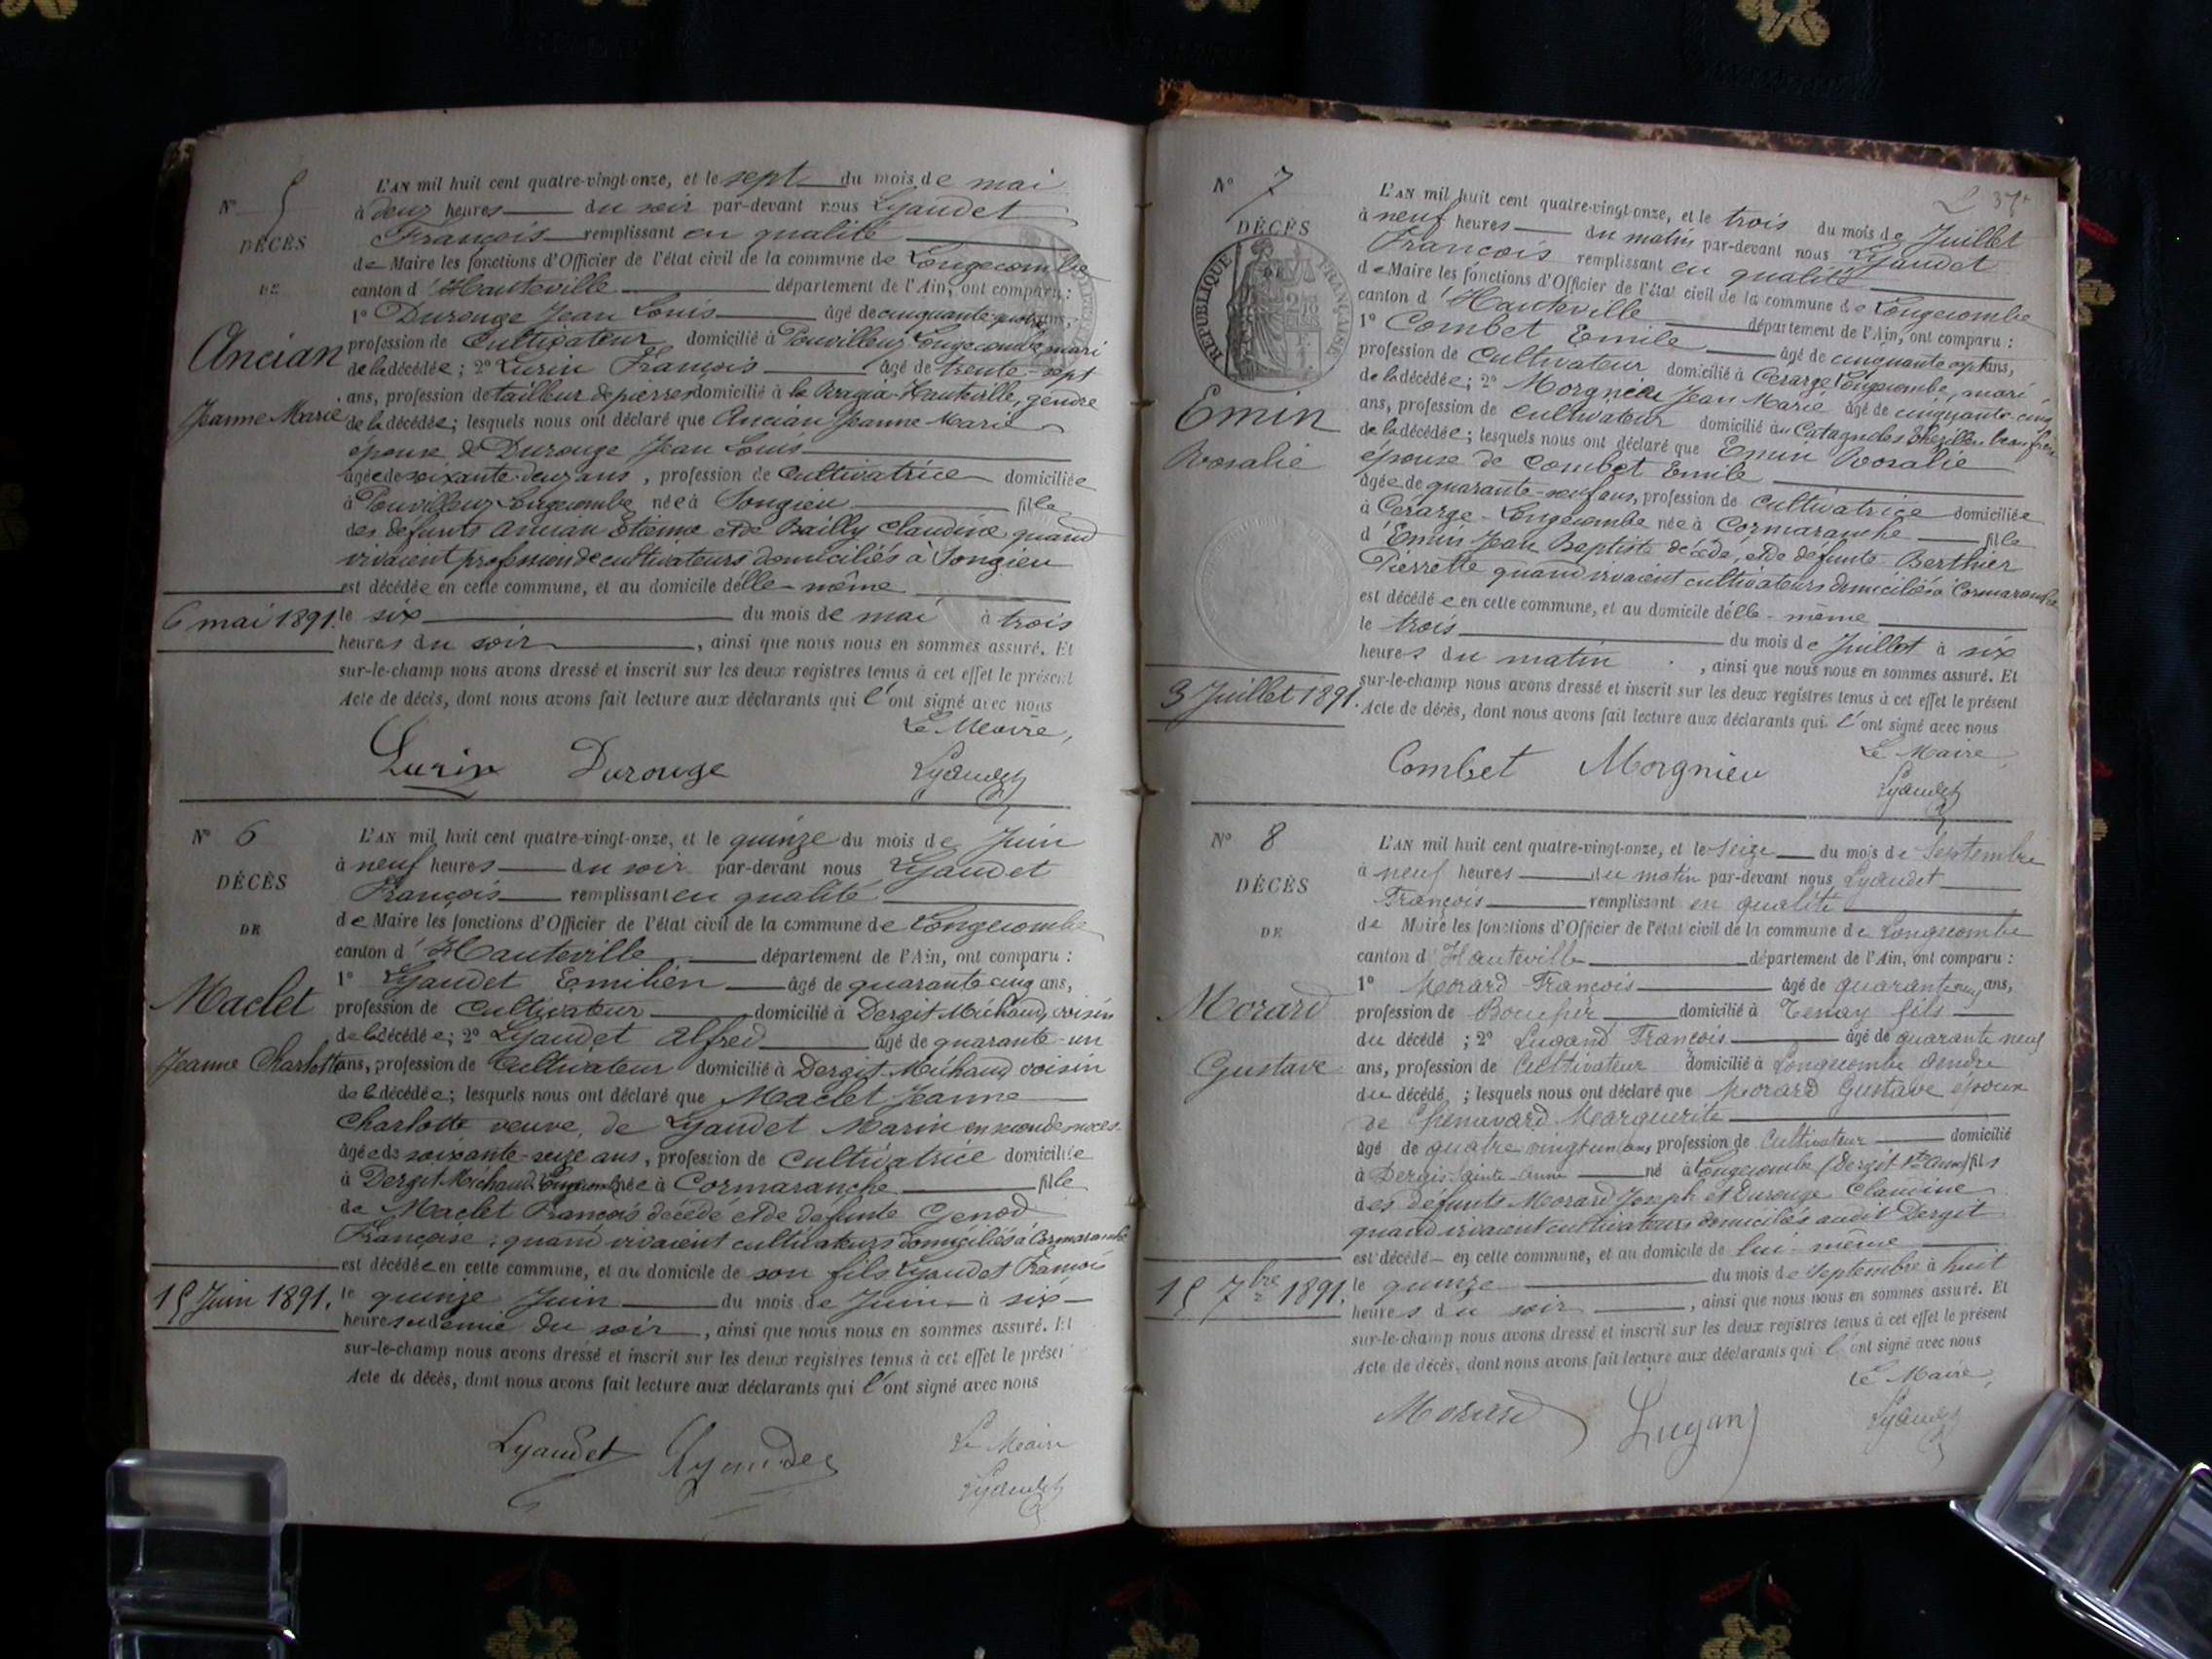 N° 5
DÉCÈS
DE
Ancian
Jeanne Marie
6 mai 1891.
L'AN mil huit cent quatre-vingt-onze, et le sept du mois de mai
à deux heures du soir par-devant nous Lyaudet
François remplissant en qualité
de Maire les fonctions d'Officier de l'état civil de la commune de Longecombe
canton d'Hauteville département de l'Ain, ont comparu :
1° Durouge Jean Louis âgé de cinquante ans,
profession de Cultivateur domicilié à Pouvilleux Longecombe mari
de la décédée ; 2° Lurin François âgé de trente-sept
ans, profession de tailleur de pierres domicilié à la Hauteville, gendre
de la décédée ; lesquels nous ont déclaré que Ancian Jeanne Marie
épouse de Durouge Jean Louis
âgée de soixante-deux ans, profession de Cultivatrice domiciliée
à Pouvilleux Longecombe née à Songieu fille
des défunts Ancian Etienne et de Bailly Claudine quand
vivaient profession de cultivateurs domiciliés à Songieu
est décédée en cette commune, et au domicile d'elle-même
le six du mois de mai à trois
heures du soir, ainsi que nous nous en sommes assuré. Et
sur-le-champ nous avons dressé et inscrit sur les deux registres tenus à cet effet le présent
Acte de décès, dont nous avons fait lecture aux déclarants qui l'ont signé avec nous
Le Maire,
Lurin Durouge Lyaudet
N° 6
DÉCÈS
DE
Maclet
Jeanne Charlotte
15 Juin 1891.
L'AN mil huit cent quatre-vingt-onze, et le quinze du mois de Juin
à neuf heures du soir par-devant nous Lyaudet
François remplissant en qualité
de Maire les fonctions d'Officier de l'état civil de la commune de Longecombe
canton d'Hauteville département de l'Ain, ont comparu :
1° Lyaudet Emilien âgé de quarante cinq ans,
profession de Cultivateur domicilié à Dergit Michaud, voisin
de la décédée ; 2° Lyaudet Alfred âgé de quarante-un
ans, profession de Cultivateur domicilié à Dergit-Michaud voisin
de la décédée ; lesquels nous ont déclaré que Maclet Jeanne
Charlotte veuve de Lyaudet Marin en seconde noces
âgée de soixante-seize ans, profession de Cultivatrice domiciliée
à Dergit Michaud Longecombe née à Cormaranche fille
de Maclet François décédé et de défunte Genod
Françoise, quand vivaient cultivateurs domiciliés à Cormaranche
est décédée en cette commune, et au domicile de son fils Lyaudet François
le quinze Juin du mois de Juin à six
heures et demie du soir, ainsi que nous nous en sommes assuré. Et
sur-le-champ nous avons dressé et inscrit sur les deux registres tenus à cet effet le présent
Acte de décès, dont nous avons fait lecture aux déclarants qui l'ont signé avec nous
Le Maire
Lyaudet Lyaudet Lyaudet
37
N° 7
DÉCÈS
DE
RÉPUBLIQUE FRANÇAISE
Emin
Rosalie
3 Juillet 1891.
L'AN mil huit cent quatre-vingt-onze, et le trois du mois de Juillet
à neuf heures du matin par-devant nous Lyaudet
François remplissant en qualité
de Maire les fonctions d'Officier de l'état civil de la commune de Longecombe
canton d'Hauteville département de l'Ain, ont comparu :
1° Combet Emile âgé de cinquante sept ans,
profession de Cultivateur domicilié à Cerarge Longecombe, mari
de la décédée ; 2° Morgnieu Jean Marie âgé de cinquante cinq
ans, profession de Cultivateur domicilié au Catagnoles Thézillieu beau frère
de la décédée ; lesquels nous ont déclaré que Emin Rosalie
épouse de Combet Emile
âgée de quarante-neuf ans, profession de Cultivatrice domiciliée
à Cerarge-Longecombe née à Cormaranche fille
d'Emin Jean Baptiste décédé, et de défunte Berthier
Pierrette quand vivaient cultivateurs domiciliés à Cormaranche
est décédée en cette commune, et au domicile d'elle-même
le trois du mois de Juillet à six
heures du matin, ainsi que nous nous en sommes assuré. Et
sur-le-champ nous avons dressé et inscrit sur les deux registres tenus à cet effet le présent
Acte de décès, dont nous avons fait lecture aux déclarants qui l'ont signé avec nous
Le Maire
Combet Morgnieu Lyaudet
N° 8
DÉCÈS
DE
Morard
Gustave
15 7bre 1891.
L'AN mil huit cent quatre-vingt-onze, et le seize du mois de Septembre
à neuf heures du matin par-devant nous Lyaudet
François remplissant en qualité
de Maire les fonctions d'Officier de l'état civil de la commune de Longecombe
canton d'Hauteville département de l'Ain, ont comparu :
1° Morard François âgé de quarante ans,
profession de domicilié à Tenay fils
du décédé ; 2° Lugand François âgé de quarante neuf
ans, profession de Cultivateur domicilié à Longecombe gendre
du décédé ; lesquels nous ont déclaré que Morard Gustave époux
de Chenavard Marguerite
âgé de quatre vingt un ans, profession de Cultivateur domicilié
à Dergis-Sainte-Anne né à Longecombe (Dergit Ste Anne) fils
des défunts Morard Joseph et Durouge Claudine
quand vivaient cultivateurs domiciliés audit Dergit
est décédé en cette commune, et au domicile de lui-même
le quinze du mois de Septembre à huit
heures du soir, ainsi que nous nous en sommes assuré. Et
sur-le-champ nous avons dressé et inscrit sur les deux registres tenus à cet effet le présent
Acte de décès, dont nous avons fait lecture aux déclarants qui l'ont signé avec nous
Le Maire,
Morard Lugand Lyaudet